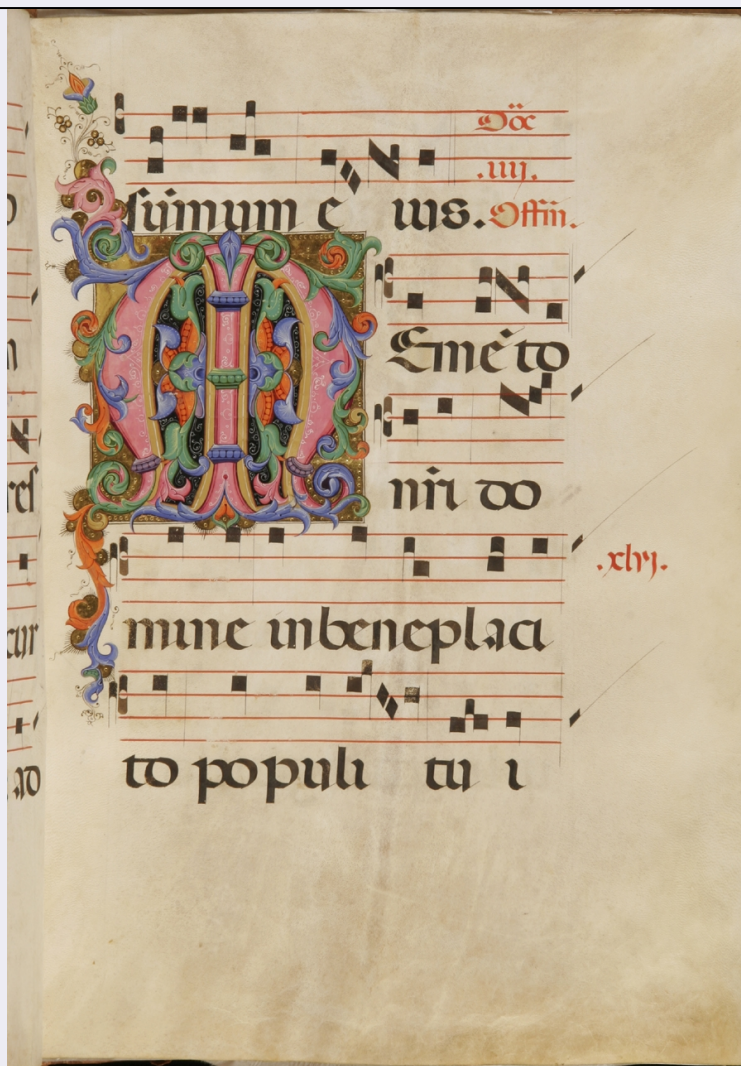 Dōc
.iiij.
sūmum e ius. Offm̄.
MEmēto
nr̄i do
.xlvj.
mine in beneplaci
to populi tu i